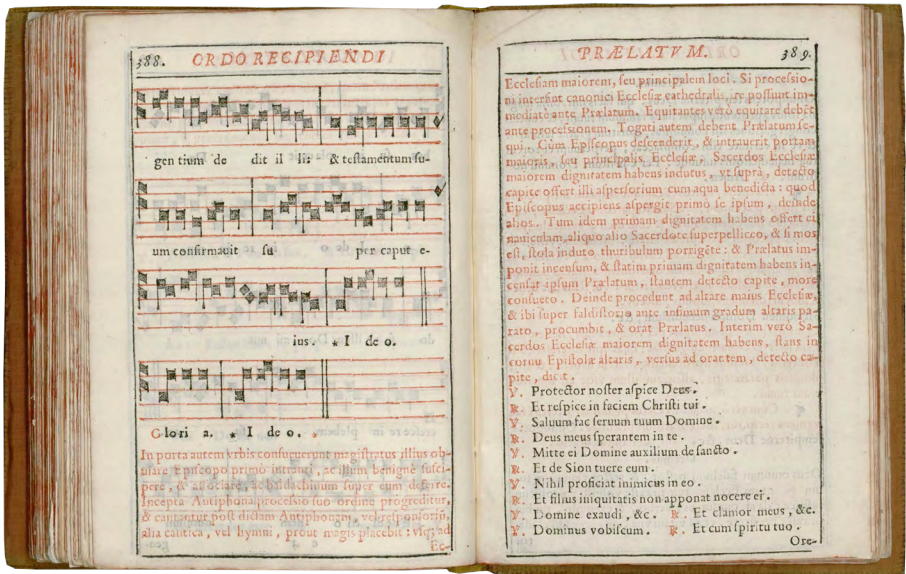 388. ORDO RECIPIENDI
gen tium de dit il li: & testamentum su-
um confirmauit su per caput e-
ius. ★ I de o.
Glori a. ★ I de o.
In porta autem vrbis consueuerunt magistratus illius ob-
uiare Episcopo primò intranti, ac illum benignè susci-
pere, & associare, ac baldachinum super eum deferre.
Incepta Antiphona processio suo ordine progreditur,
& cantantur post dictam Antiphonam, vel responsoriũ,
alia cantica, vel hymni, prout magis placebit: vsq; ad
Ec-
PRÆLATVM. 389.
Ecclesiam maiorem, seu principalem loci. Si processio-
ni intersint canonici Ecclesiæ cathedralis, ire possunt im-
mediatè ante Prælatum. Equitantes verò equitare debẽt
ante processionem. Togati autem debent Prælatum se-
qui. Cùm Episcopus descenderit, & intrauerit portam
maioris, seu principalis Ecclesiæ, Sacerdos Ecclesiæ
maiorem dignitatem habens indutus, vt suprà, detecto
capite offert illi aspersorium cum aqua benedicta: quod
Episcopus accipiens aspergit primò se ipsum, deinde
alios. Tum idem primam dignitatem habens offert ei
nauiculam, aliquo alio Sacerdote superpelliceo, & si mos
est, stola induto thuribulum porrigẽte: & Prælatus im-
ponit incensum, & statim primam dignitatem habens in-
censat ipsum Prælatum, stantem detecto capite, more
consueto. Deinde procedunt ad altare maius Ecclesiæ,
& ibi super faldistorio ante infimum gradum altaris pa-
rato, procumbit, & orat Prælatus. Interim verò Sa-
cerdos Ecclesiæ maiorem dignitatem habens, stans in
cornu Epistolæ altaris, versus ad orantem, detecto ca-
pite, dicit.
℣. Protector noster aspice Deus.
℟. Et respice in faciem Christi tui.
℣. Saluum fac seruum tuum Domine.
℟. Deus meus sperantem in te.
℣. Mitte ei Domine auxilium de sancto.
℟. Et de Sion tuere eum.
℣. Nihil proficiat inimicus in eo.
℟. Et filius iniquitatis non apponat nocere ei.
℣. Domine exaudi, &c. ℟. Et clamor meus, &c.
℣. Dominus vobiscum. ℟. Et cum spiritu tuo.
Ore-